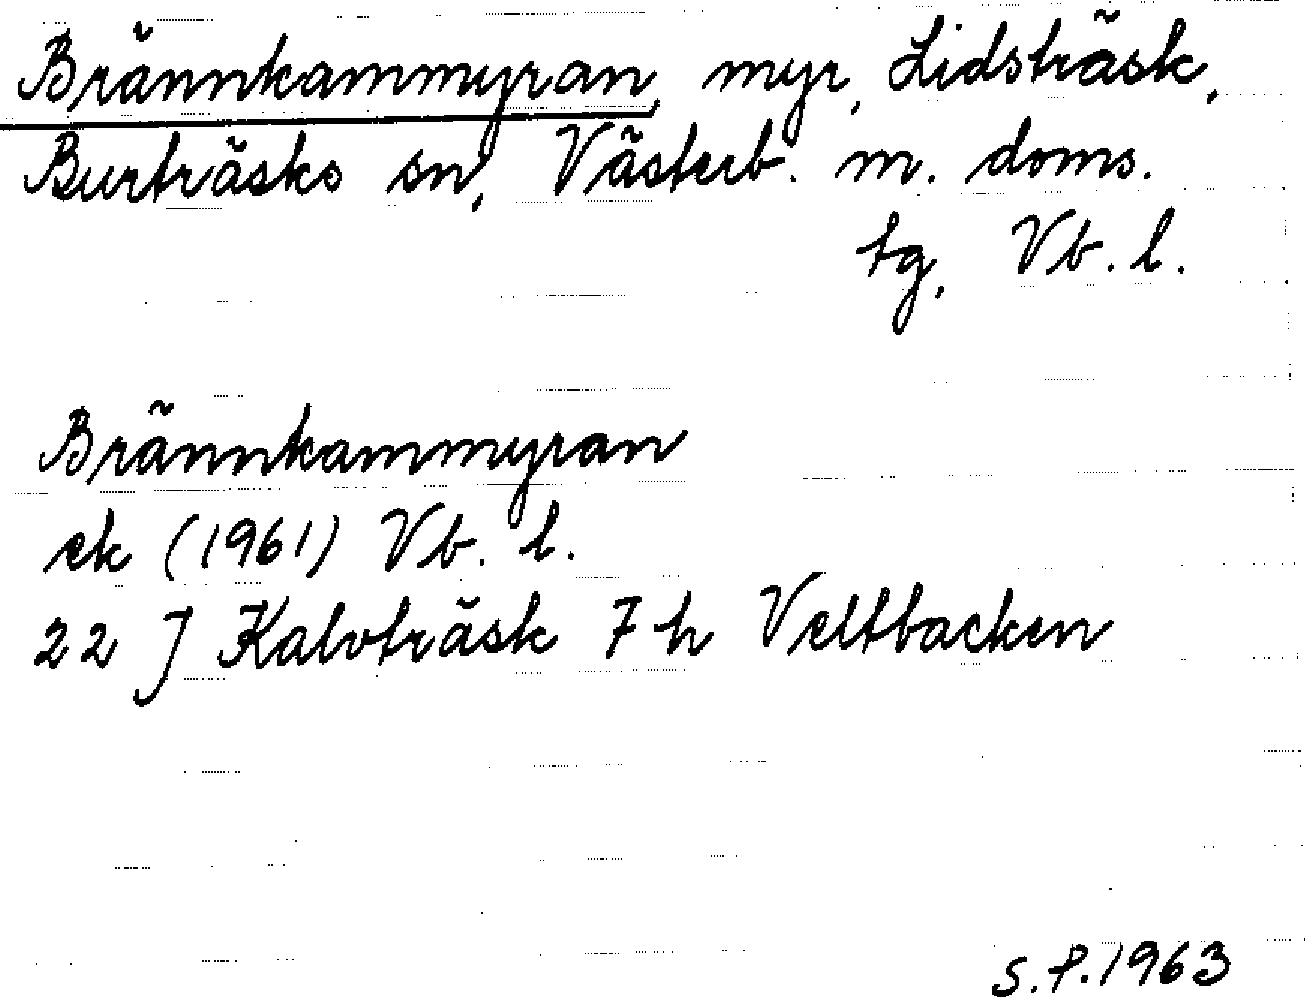 Brännkammyran, myr, Lidsträsk,
Burträsks sn, Västerb. m. doms.
tg, Vb. l.
Brännkammyran
ek (1961) Vb. l.
22 J Kalvträsk 7 h Veltbacken
S.P. 1963